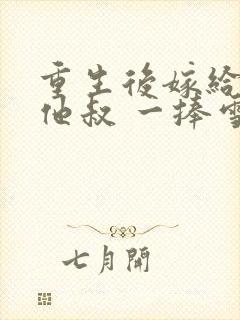 重生後嫁給
他叔 一捧雪
七月開